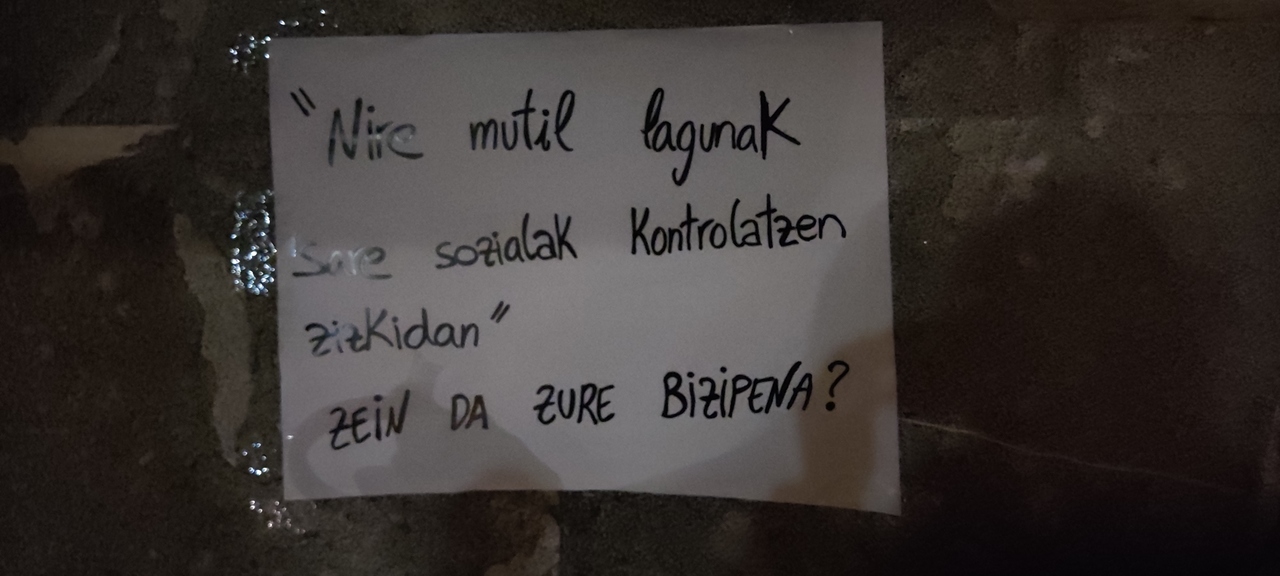 "Nire mutil lagunak
sare sozialak kontrolatzen
zizkidan"
ZEiN DA ZURE BiZiPENA?